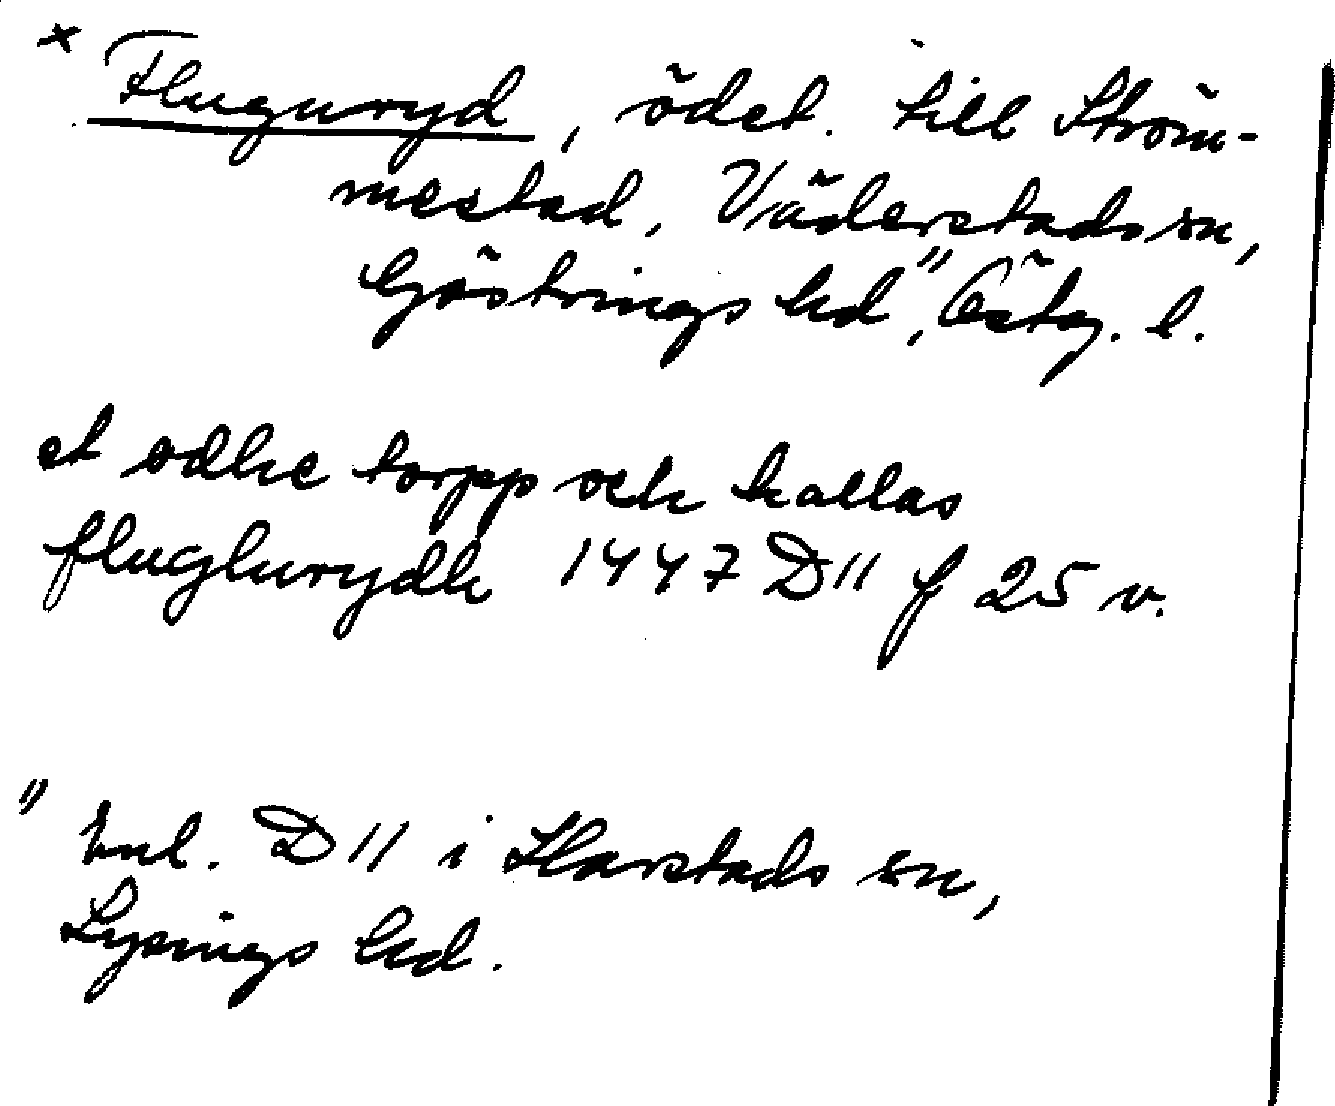 × Fluguryd, ödet. till Ström-
mestad, Väderstads sn,
Göstrings hd,¨ Östg. l.
et ødhe torpp och kallas
flughurydh 1447 D11 f 25 v.
" Enl. D11 i Harstads sn,
Lysings hd.